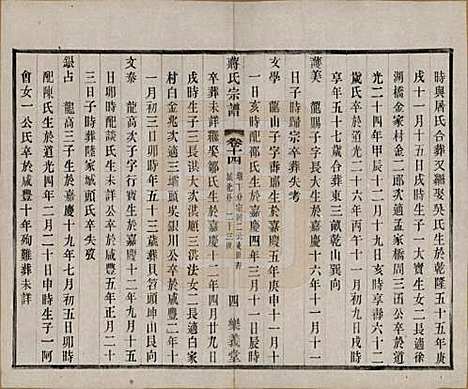 時與居氏合葬又繼娶吳氏生於乾隆五十五年庚
戌十一月十五日子時生子一大寶生女二長適徐
湖橋金家村金一郎次適孟家橋周三函公卒於道
光二十四年甲辰十二月二十三日亥時享壽六十二
歲氏卒於道光二十六年丙午十一月初九日戌時
享年五十七歲合葬東三畝乾山巽向
蘭美 龍賜子字長大生於嘉慶十六年十一月十一
日子時歸宗卒葬失考
文學 龍山子字壽耶生於嘉慶五年庚申十一月十
一日亥時配鄒氏生於嘉慶四年三月十一日亥時
卒葬未詳繼娶鄒氏生於嘉慶十二年四月廿九日
子時生子三長洪大次洪子三洪法女二長適白家
村白金兆次適三壩頭吳銀川公卒於咸豐八年十
一月初三日丑時年五十三歲葬貝笞頭坤山艮向
文泰 龍高次子字行寶生於嘉慶十二年九月十五
日卯時配談氏生年未詳卒於咸豐五年正月二十
三日子時葬陸家城頭氏卒失攷
銀占 龍高三子生於嘉慶十九年七月初五日卯時
配陳氏生於道光四年二月二十日申時生子一阿
會女一公氏卒於咸豐十年殉難葬未詳
蔣氏宗譜
卷四
四 樂義堂